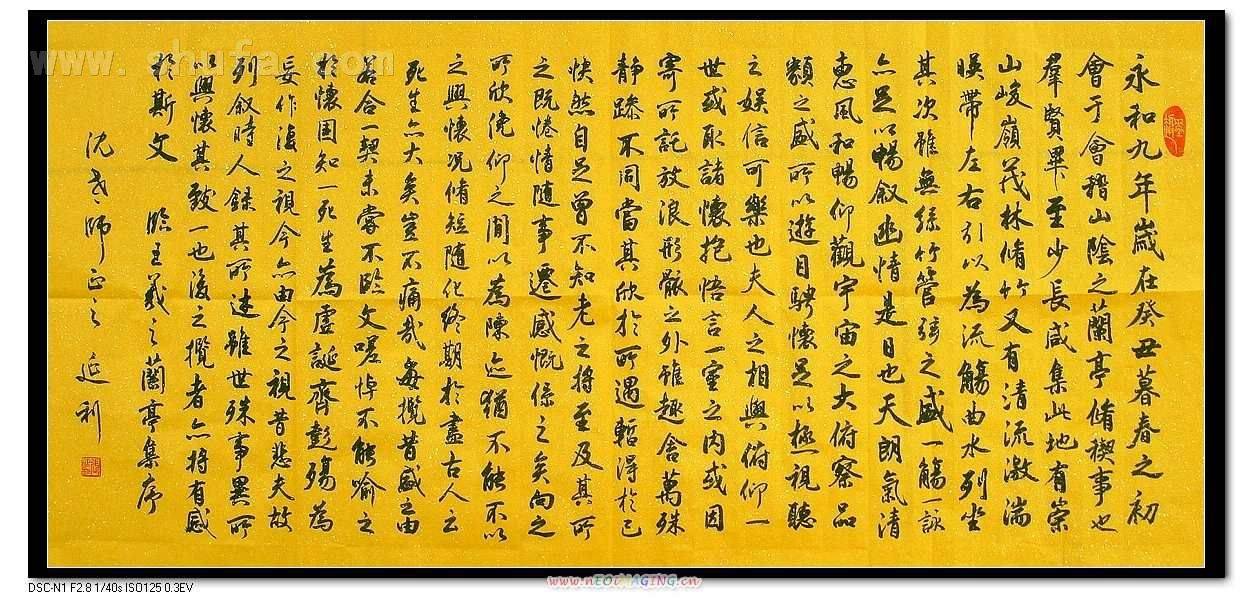 永和九年歲在癸丑暮春之初
會于會稽山陰之蘭亭脩禊事也
羣賢畢至少長咸集此地有崇
山峻嶺茂林脩竹又有清流激湍
暎帶左右引以為流觴曲水列坐
其次雖無絲竹管弦之盛一觴一詠
亦足以暢叙幽情是日也天朗氣清
惠風和暢仰觀宇宙之大俯察品
類之盛所以遊目騁懷足以極視聽
之娛信可樂也夫人之相與俯仰一
世或取諸懷抱悟言一室之内或因
寄所託放浪形骸之外雖趣舍萬殊
靜躁不同當其欣於所遇暫得於己
怏然自足曾不知老之將至及其所
之既惓情隨事遷感慨係之矣向之
所欣俛仰之間以為陳迹猶不能不以
之興懷況脩短隨化終期於盡古人云
死生亦大矣豈不痛哉每攬昔感之由
若合一契未嘗不臨文嗟悼不能喻之
於懷固知一死生為虛誕齊彭殤為
妄作後之視今亦由今之視昔悲夫故
列叙時人錄其所述雖世殊事異所
以興懷其致一也後之攬者亦將有感
於斯文 臨王羲之蘭亭集序
沈老師正之 延利
www.shufa.com
DSC-N1 F2.8 1/40s ISO125 0.3EV
www.nEOiMAGING.cn